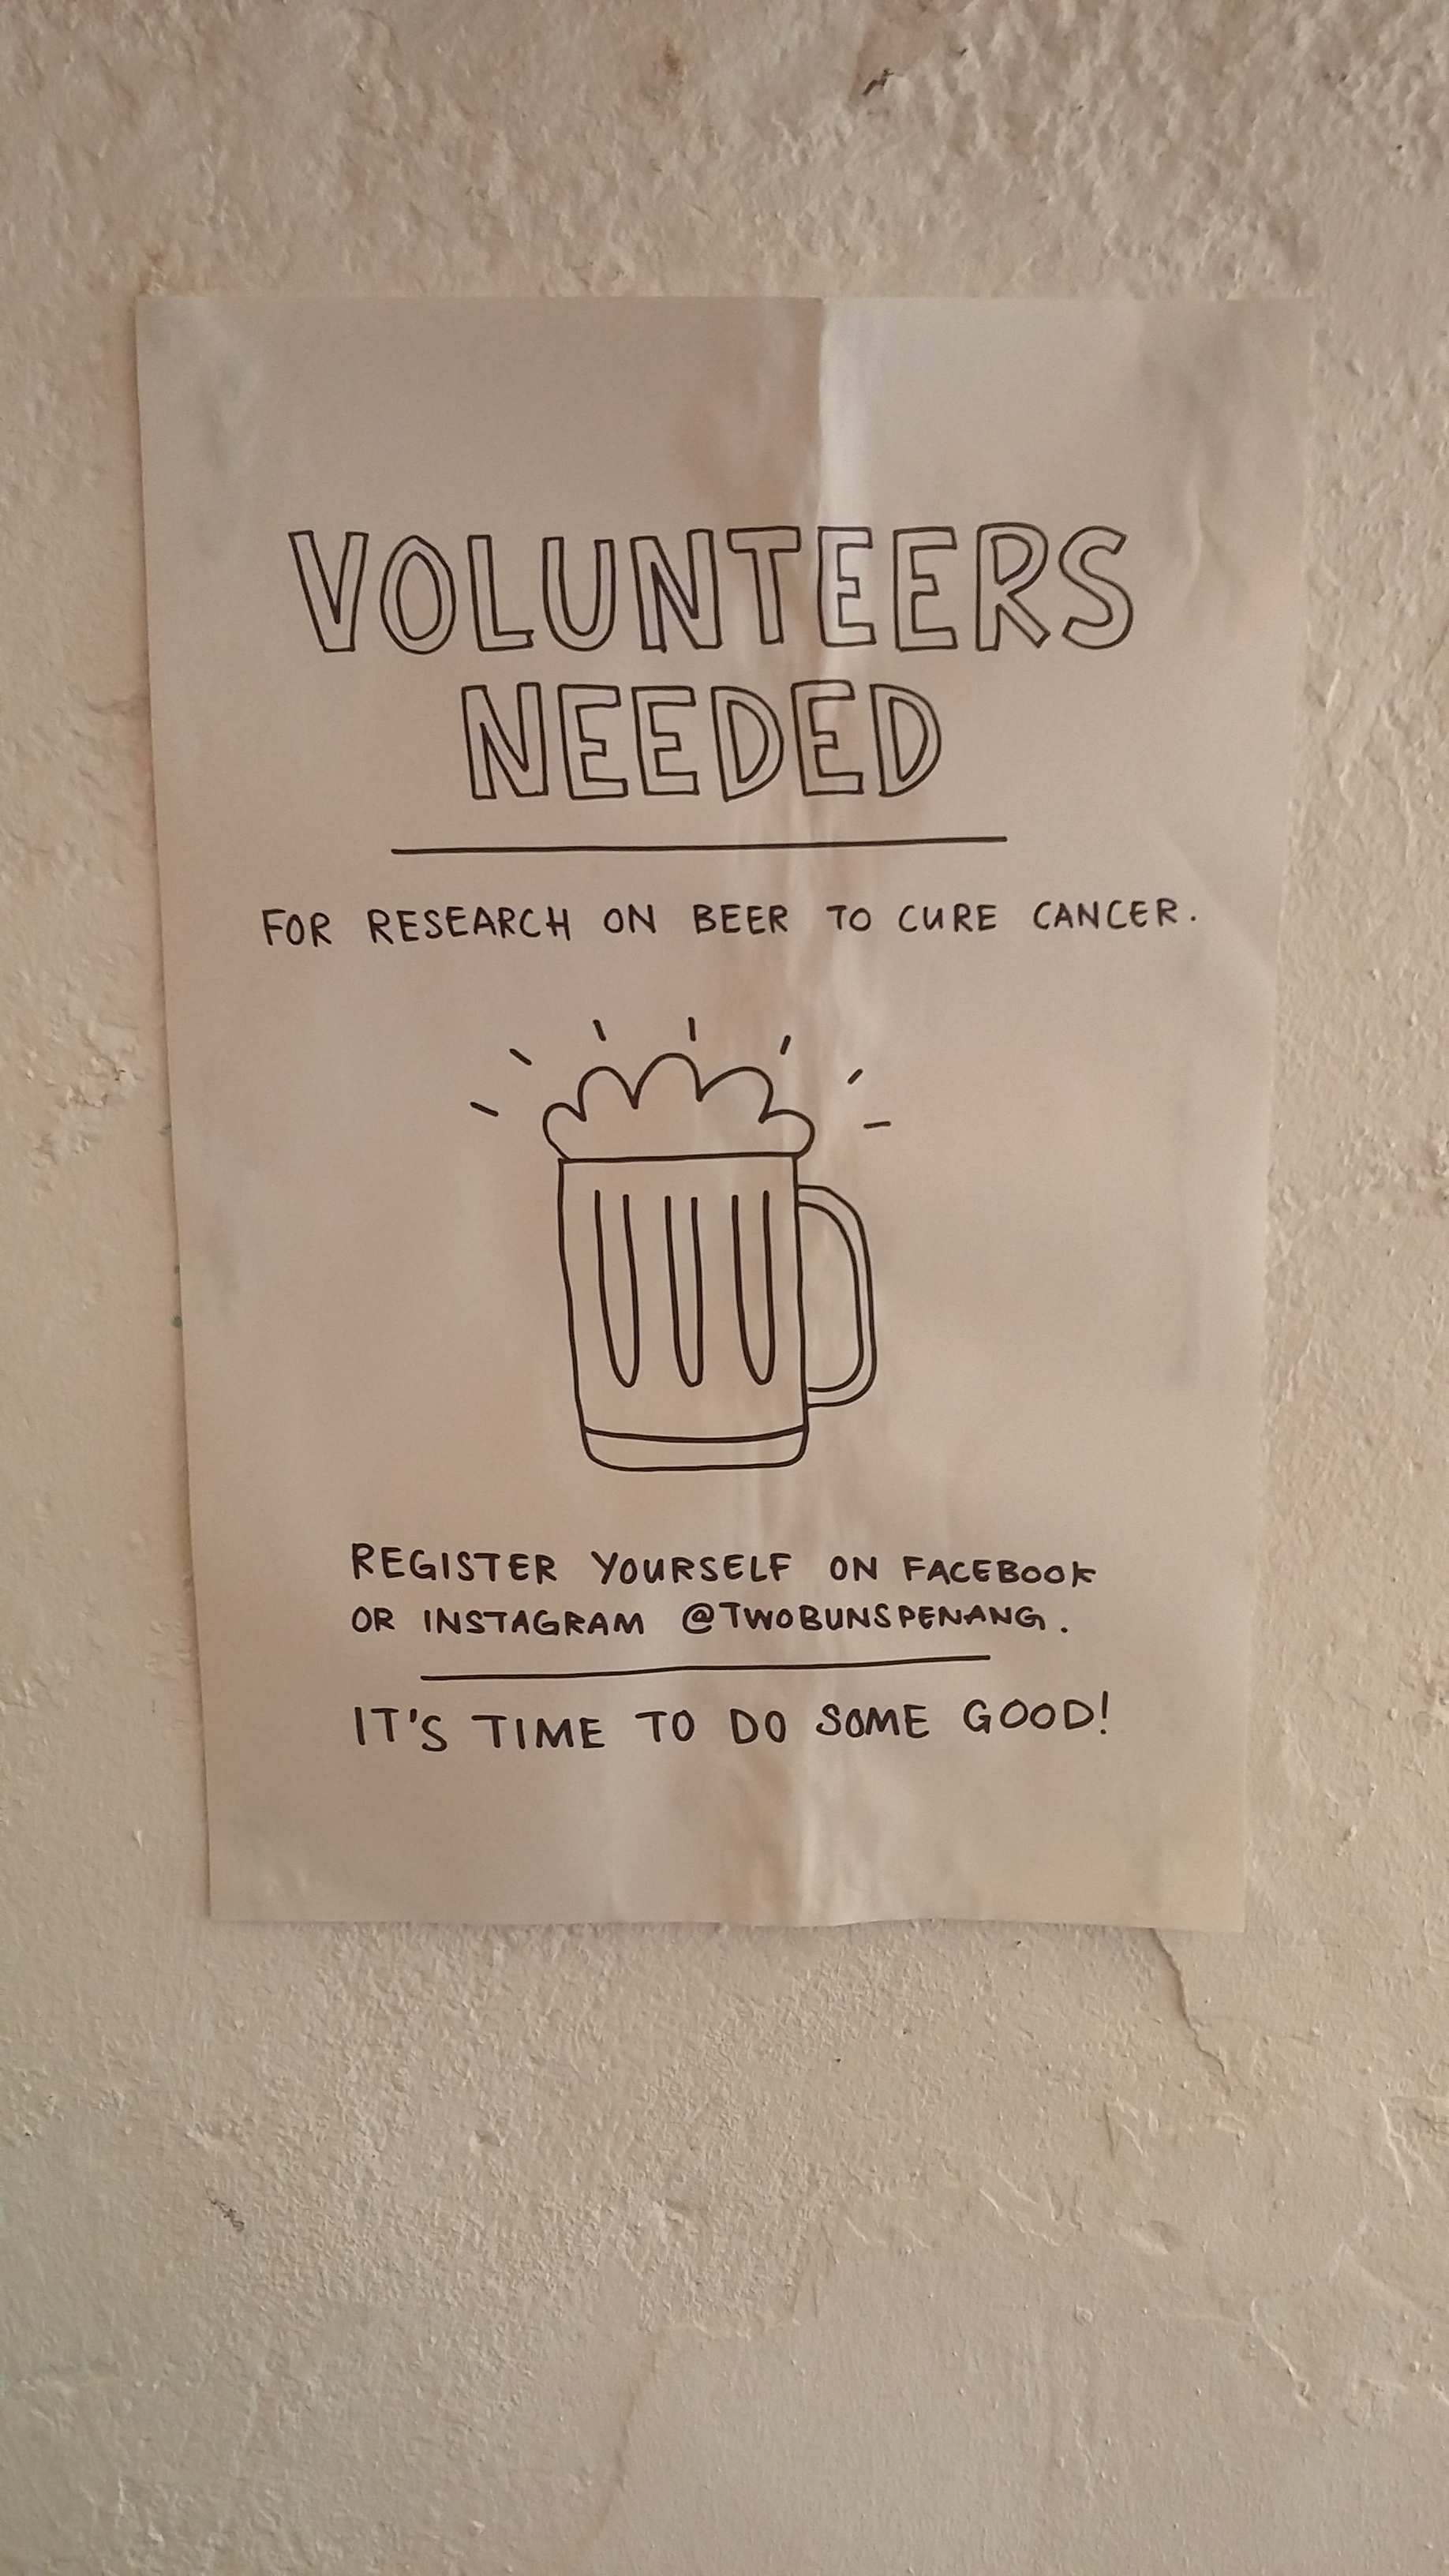 VOLUNTEERS
NEEDED
FOR RESEARCH ON BEER TO CURE CANCER.
REGISTER YOURSELF ON FACEBOOK
OR INSTAGRAM @TWOBUNSPENANG.
IT'S TIME TO DO SOME GOOD!